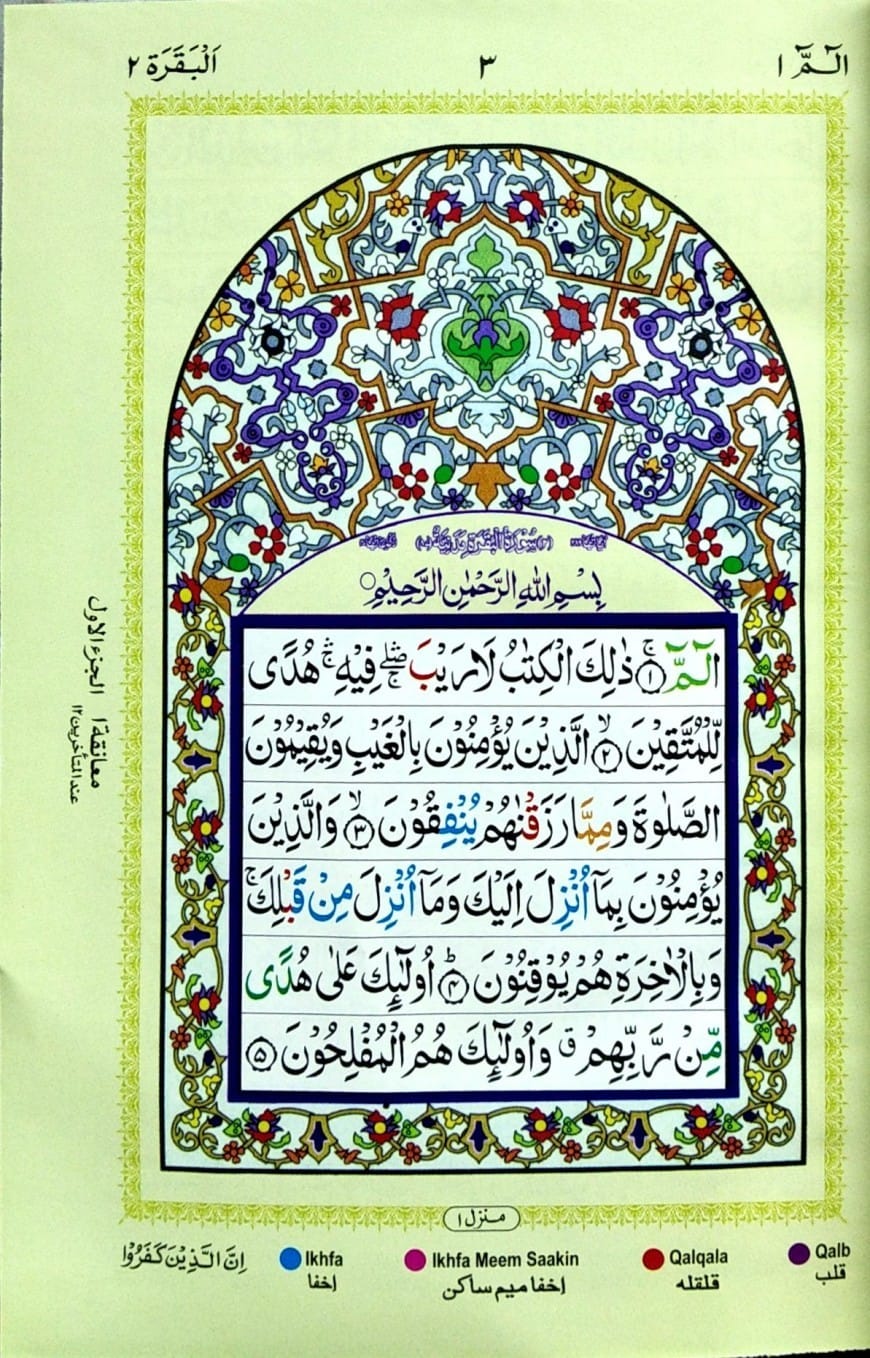 الٓمّٓ ١
٣
اَلْبَقَرَة ٢
سُوْرَةُ الْبَقَرَةِ مَدَنِيَّةٌ
بِسْمِ اللهِ الرَّحْمٰنِ الرَّحِيْمِ
الٓمّٓ ۚ ١ ذٰلِكَ الْكِتٰبُ لَا رَيْبَ ۛۖۚ فِيْهِ ۛۚ هُدًى
لِّلْمُتَّقِيْنَ ۙ ٢ الَّذِيْنَ يُؤْمِنُوْنَ بِالْغَيْبِ وَيُقِيْمُوْنَ
الصَّلٰوةَ وَمِمَّا رَزَقْنٰهُمْ يُنْفِقُوْنَ ۙ ٣ وَالَّذِيْنَ
يُؤْمِنُوْنَ بِمَآ اُنْزِلَ اِلَيْكَ وَمَآ اُنْزِلَ مِنْ قَبْلِكَ ۚ
وَبِالْاٰخِرَةِ هُمْ يُوْقِنُوْنَ ؕ ٤ اُولٰٓئِكَ عَلٰى هُدًى
مِّنْ رَّبِّهِمْ ق وَاُولٰٓئِكَ هُمُ الْمُفْلِحُوْنَ ٥
معانقة ١ الجزء الاول
عند المتأخرين ١٢
منزل ١
اِنَّ الَّذِيْنَ كَفَرُوْا
Ikhfa
اخفا
Ikhfa Meem Saakin
اخفا میم ساکن
Qalqala
قلقله
Qalb
قلب